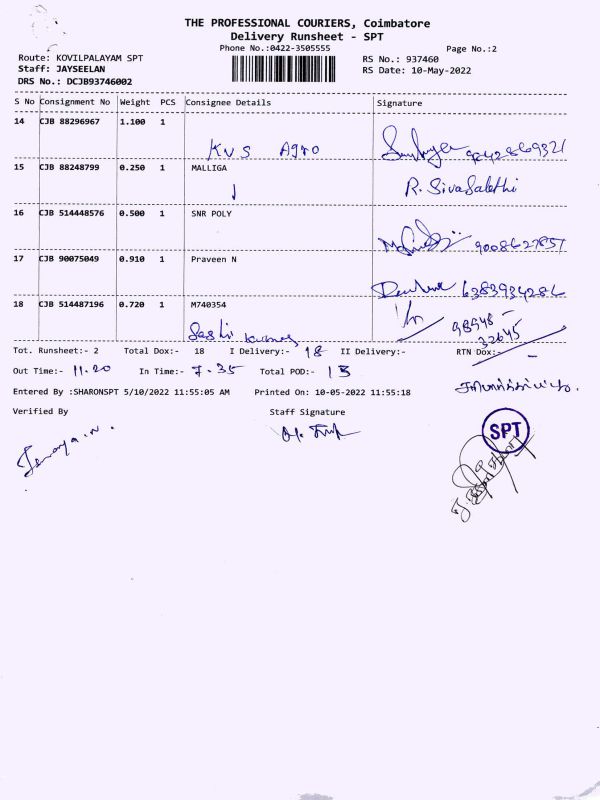 THE PROFESSIONAL COURIERS, Coimbatore
Delivery Runsheet - SPT
Phone No.:0422-3505555
Page No.:2
Route: KOVILPALAYAM SPT
RS No.: 937460
Staff: JAYSEELAN
RS Date: 10-May-2022
DRS No.: DCJB93746002
S No Consignment No Weight PCS Consignee Details Signature
14 CJB 88296967 1.100 1
KVS Agro
15 CJB 88248799 0.250 1 MALLIGA
R. SivaSakthi
16 CJB 514448576 0.500 1 SNR POLY
17 CJB 90075049 0.910 1 Praveen N
6383934286
18 CJB 514487196 0.720 1 M740354
Sashi Kumar
98948
32645
Tot. Runsheet:- 2 Total Dox:- 18 I Delivery:- 18 II Delivery:- RTN Dox:-
Out Time:- 11.20 In Time:- 7.35 Total POD:- 13
Entered By :SHARONSPT 5/10/2022 11:55:05 AM Printed On: 10-05-2022 11:55:18
Verified By Staff Signature
SPT